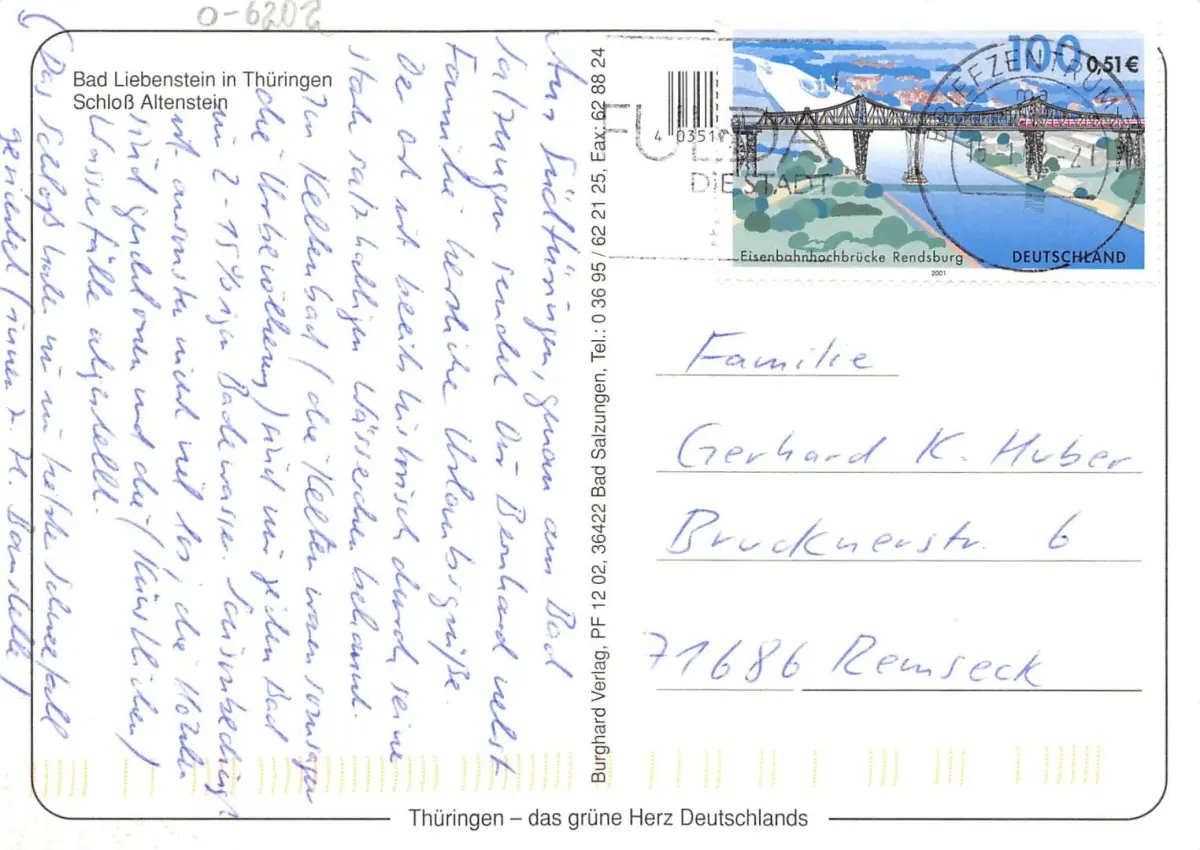 O-6202
Bad Liebenstein in Thüringen
Schloß Altenstein
Aus Südthüringen, genau aus Bad
Salzungen sendet Dir Bernhard nebst
Familie herzliche Urlaubsgrüße.
Der Ort ist bereits historisch durch seine
stark salzhaltigen Wässerchen bekannt.
Im Keltenbad (die Kelten waren sozusagen
die Urbevölkerung) sind wir jeden Tag
im 2 - 15%igen Badewasser. Saisonbedingt
ist ansonsten nicht viel los, die Höhlen
sind geschlossen und die (künstlichen)
Wasserfälle abgestellt.
Das Schloß haben wir im tiefsten Schneefall
gesichtet (innen z. Zt. Baustelle)
Burghard Verlag, PF 12 02, 36422 Bad Salzungen, Tel.: 0 36 95 / 62 21 25, Fax: 62 88 24
4 03519
FULDA
DIE STADT
BRIEFZENTRUM
100
0,51 €
Eisenbahnhochbrücke Rendsburg
DEUTSCHLAND
2001
Familie
Gerhard K. Huber
Brucknerstr. 6
71686 Remseck
Thüringen – das grüne Herz Deutschlands